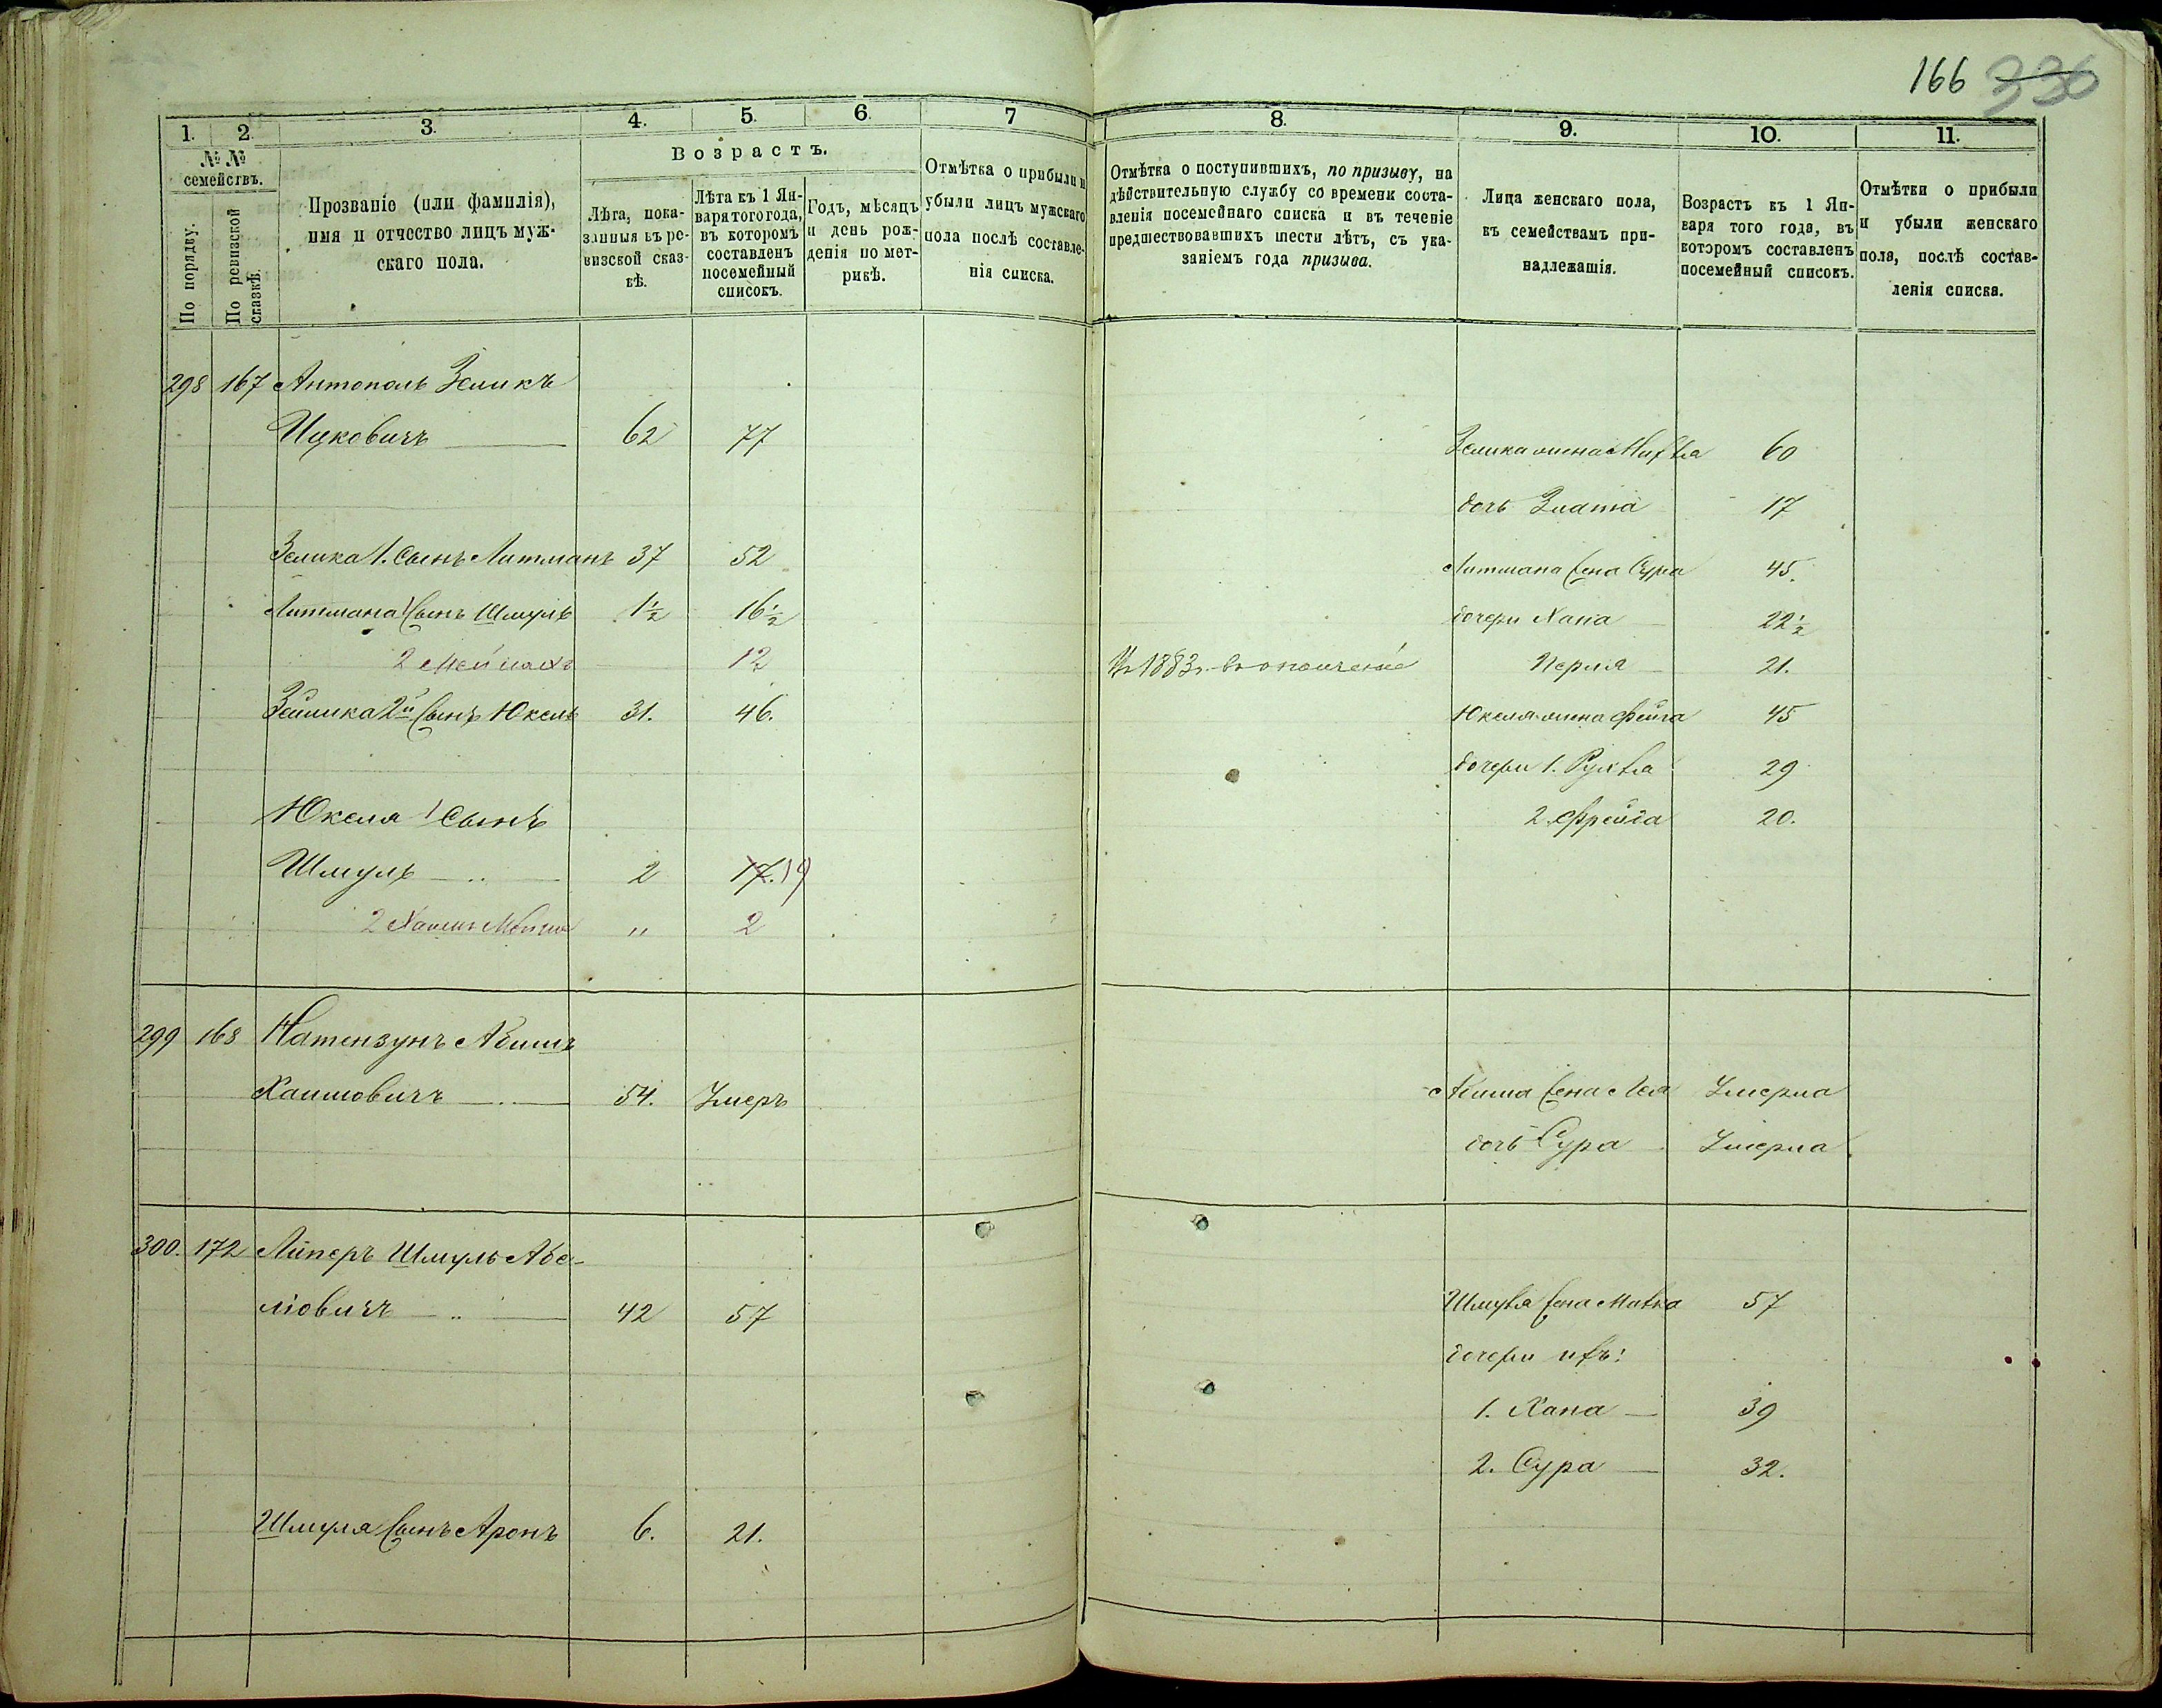 166 336
1. 2. 3. 4. 5. 6. 7 8. 9. 10. 11.
№ № семействъ.
По порядку.
По ревизской сказкѣ.
Прозваніе (или фамилія),
имя и отчество лицъ муж-
скаго пола.
Возрастъ.
Лѣта, пока-
занныя въ ре-
визской сказ-
кѣ.
Лѣта къ 1 Ян-
варя того года,
въ которомъ
составленъ
посемейный
списокъ.
Годъ, мѣсяцъ
и день рож-
денія по мет-
рикѣ.
Отмѣтка о прибыли и
убыли лицъ мужскаго
пола послѣ составле-
нія списка.
Отмѣтка о поступившихъ, по призыву, на
дѣйствительную службу со времени соста-
вленія посемейнаго списка и въ теченіе
предшествовавшихъ шести лѣтъ, съ ука-
заніемъ года призыва.
Лица женскаго пола,
къ семействамъ при-
надлежащія.
Возрастъ къ 1 Ян-
варя того года, въ
которомъ составленъ
посемейный списокъ.
Отмѣтки о прибыли
и убыли женскаго
пола, послѣ состав-
ленія списка.
298 167 Антополь Зеликъ
Ицковичъ 62 77
Зелика жена 60
дочь Злата 17
Зелика 1. Сынъ Литманъ 37 52 Литмана жена Сура 45.
Литмана 1 Сынъ Шмуль 1½ 16½ дочери Хана 22½
2 12 Въ 1883 г. въ ополченіе Перля 21.
Зелика 2й Сынъ Юкель 31. 46. Юкеля жена Фейга 45
дочери 1. Рухля 29
Юкеля 1 Сынъ 2. Фрейда 20.
Шмуль 2 17. 19
2 Хаимъ " 2
299 168 Натензунъ Абишъ
Хаимовичъ 54. Умеръ Абиша жена Лея Умерла
дочь Сура Умерла
300. 172 Липеръ Шмуль Абе-
ліовичъ 42 57 Шмуля жена 57
дочери ихъ:
1. Хана 39
2. Сура 32.
Шмуля Сынъ Аронъ 6. 21.